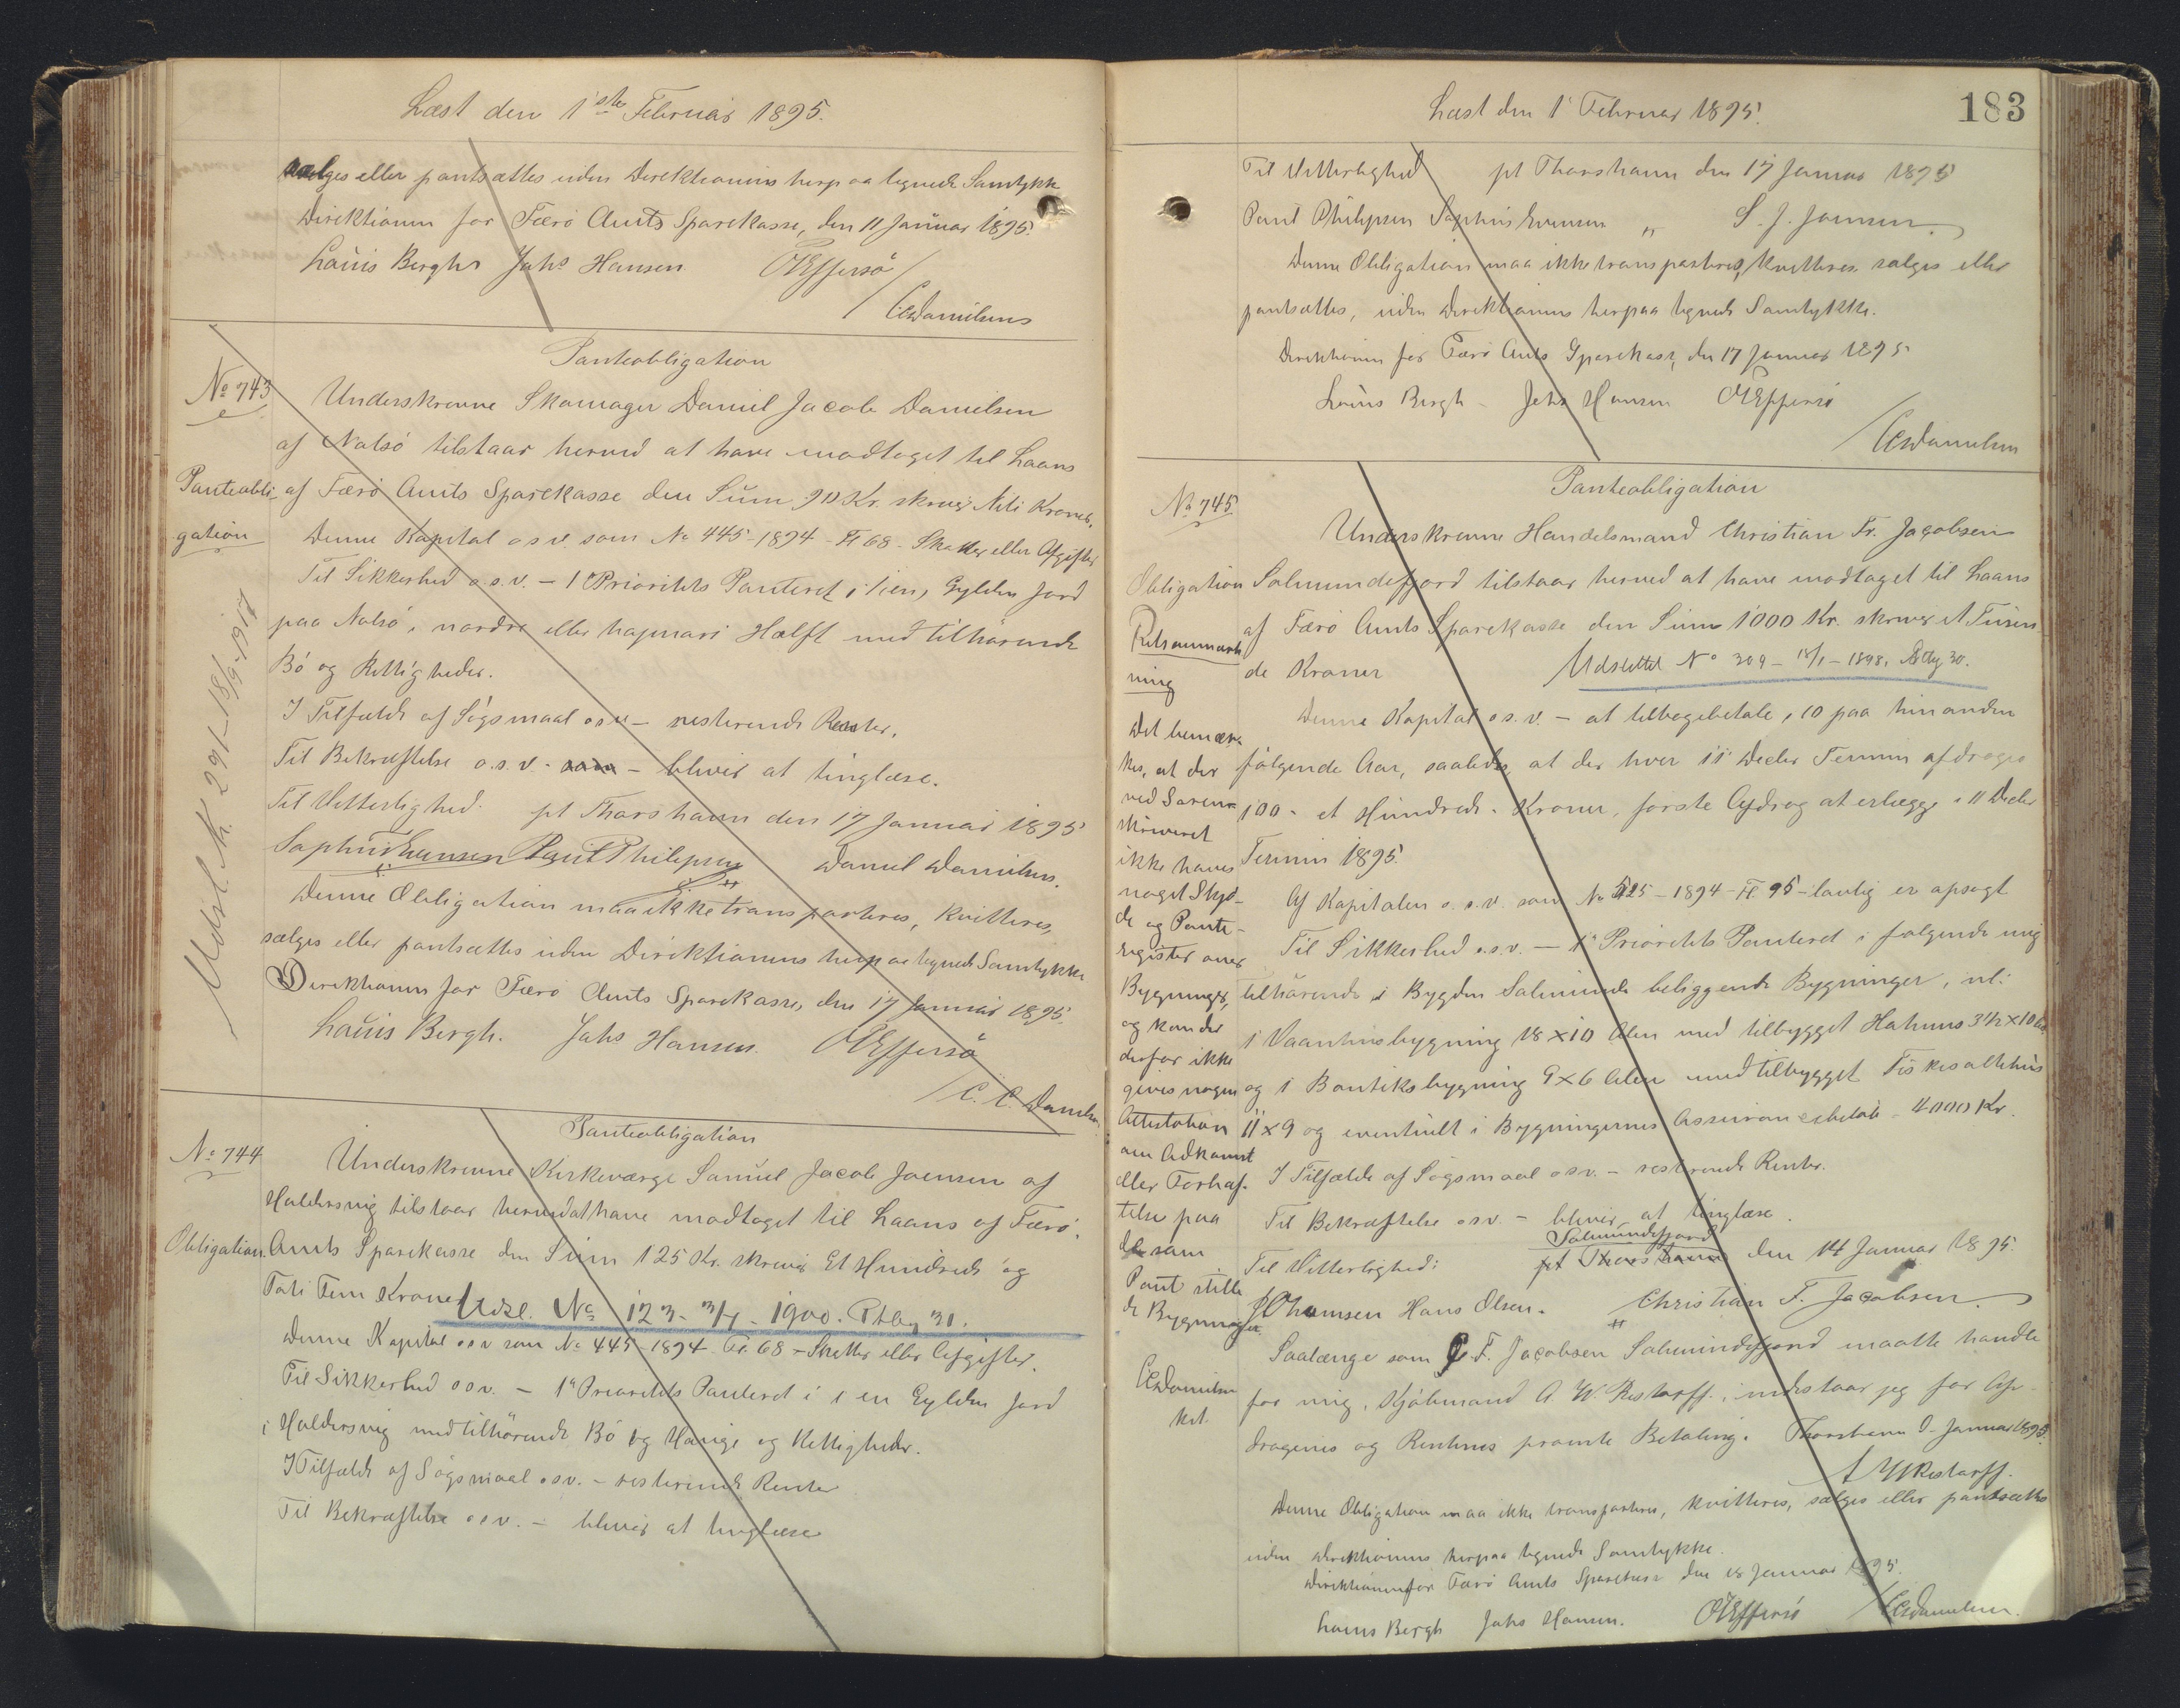 Læst den 1ste Februar 1895.
sælges eller pantsættes uden Direktionens herpaa tegnede Samtykke
Direktionen for Færö Amts Sparekasse, den 11 Januar 1895.
Louis Bergh Johs Hansen OEffersö
/CCDanielsens
Panteobligation
No 743
Underskrevne Skomager Daniel Jacob Danielsen
af Nolsö tilstaar herved at have modtaget til Laans
Panteobli-
gation
af Færö Amts Sparekasse den Sum 90 Kr. skriver Niti Kroner.
Denne Kapital osv. som No 445-1894-Fl 68- Skatter eller Afgifter
Til Sikkerhed o.s.v. - 1ste Prioritets Panteret i 1 (en) Gylden Jord
paa Nolsö, nordre eller hajmari Hælft med tilhörende
Bö og Rettigheder.
I Tilfælde af Sögsmaal osv - resterende Renter.
Til Bekræftelse o.s.v. - bliver at tinglæse.
Til Vitterlighed. pt Thorshavn den 17 Januar 1895
Sophus Evensen Poul Philipsen Daniel Danielsen.
Denne Obligation maa ikke transporteres, kvitteres,
sælges eller pantsættes uden Direktionens herpaa tegnede Samtykke
Direktionen for Færö Amts Sparekasse, den 17 Januar 1895.
Louis Bergh. Johs Hansen. OEffersö
/C.C. Danielsen
Udsl. N. 291-18/9-1917
Panteobligation
No 744
Underskrevne Kirkeværge Samuel Jacob Joensen af
Haldersvig tilstaar herved at have modtaget til Laans af Færö
Obligation
Amts Sparekasse den Sum 125 Kr. skriver Et Hundrede og
Toti Fem Kroner
Udsl. No 123- 3/7 - 1900. Ptbg 31.
Denne Kapital osv som No 445-1894-Fl. 68 - Skatter eller Afgifter.
Til Sikkerhed osv. - 1ste Prioritets Panteret i 1 en Gylden Jord
i Haldersvig med tilhörende Bö og Hauge og Rettigheder.
I Tilfælde af Sögsmaal osv. - resterende Renter
Til Bekræftelse osv. - bliver at tinglæse
Læst den 1 Februar 1895.
183
Til Vitterlighed pt Thorshavn den 17 Januar 1895
Poul Philipsen Sophus Evensen " S. J. Joensen.
Denne Obligation maa ikke transporteres, kvitteres sælges eller
pantsættes, uden Direktionens herpaa tegnede Samtykke.
Direktionen for Færö Amts Sparekasse, den 17 Januar 1895
Louis Bergh - Johs Hansen OEffersö
/CCDanielsen
Panteobligation
No 745.
Underskrevne Handelsmand Christian Fr. Jacobsen
Obligation
Salmundefjord tilstaar herved at have modtaget til Laans
af Færö Amts Sparekasse den Sum 1000 Kr. skriver et Tusen-
de Kroner
Udslettet No 309 - 18/1 - 1898, Ptbg 30.
Denne Kapital osv. - at tilbagebetale i 10 paa hinanden
fölgende Aar, saaledes at der hver 11 Decbr Termin afdrages
100 - et Hundrede - Kroner, förste Afdrag at erlægge i 11 Decbr
Termin 1895.
Af Kapitalen o.s.v. som No 525-1894-Fl. 95- lovlig er opsagt
Til Sikkerhed o.s.v. - 1ste Prioritets Panteret i følgende mig
tilhörende i Bygden Salmunde beliggende Bygninger, nl:
1 Vaaningsbygning 18 x 10 Alen med tilbygget 3½ x 10 Al.
og 1 Boutiksbygning 9 x 6 Alen med tilbygget Fiskesaltehus
11 x 9 og eventuelt i Bygningernes Assurancebelöb 4000 Kr.
I Tilfælde af Sögsmaal osv. - resterende Renter.
Til Bekræftelse osv. - bliver at tinglæse.
Salmundefjord
Til Vitterlighed: pt Thorshavn den 14 Januar 1895.
JThomsen Hans Olsen. Christian F. Jacobsen.
Saalænge som C. F. Jacobsen Salmundefjord maatte handle
for mig, Kjöbmand A. W. Restorff, indestaar jeg for Af-
dragenes og Renternes promte Betaling. Thorshavn d. Januar 1895.
A W Restorff.
Denne Obligation maa ikke transporteres, kvitteres, sælges eller pantsættes
uden Direktionens herpaa tegnede Samtykke.
Direktionen for Færö Amts Sparekasse den 18 Januar 1895.
Louis Bergh Johs Hansen. OEffersö /CCDanielsen.
Retsanmærk-
ning
Det bemær-
kes, at der
ved Soren-
skriveriet
ikke haves
noget Skjö-
de og Pante-
register over
Bygninger,
og kan der
derfor ikke
gives nogen
Attestation
om Adkomst
eller Forhæf-
telse paa
de som
Pant stille-
de Bygninger.
CCDanielsen
kst.